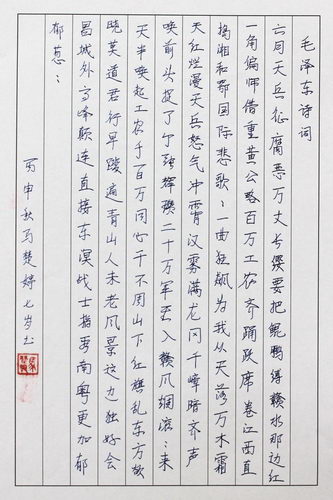 毛泽东诗词
六月天兵征腐恶万丈长缨要把鲲鹏缚赣水那边红
一角偏师借重黄公略百万工农齐踊跃席卷江西直
捣湘和鄂国际悲歌:一曲狂飙为我从天落万木霜
天红烂漫天兵怒气冲霄汉雾满龙冈千嶂暗齐声
唤前头捉了张辉瓒二十万军入赣风烟滚:来
天半唤起工农千百万同心干不周山下红旗乱东方欲
晓莫道君行早踏遍青山人未老风景这独好会
昌城外高峰颠连直接东溟战士指看南粤更加郁
郁葱:
丙申秋马楚婷七岁书